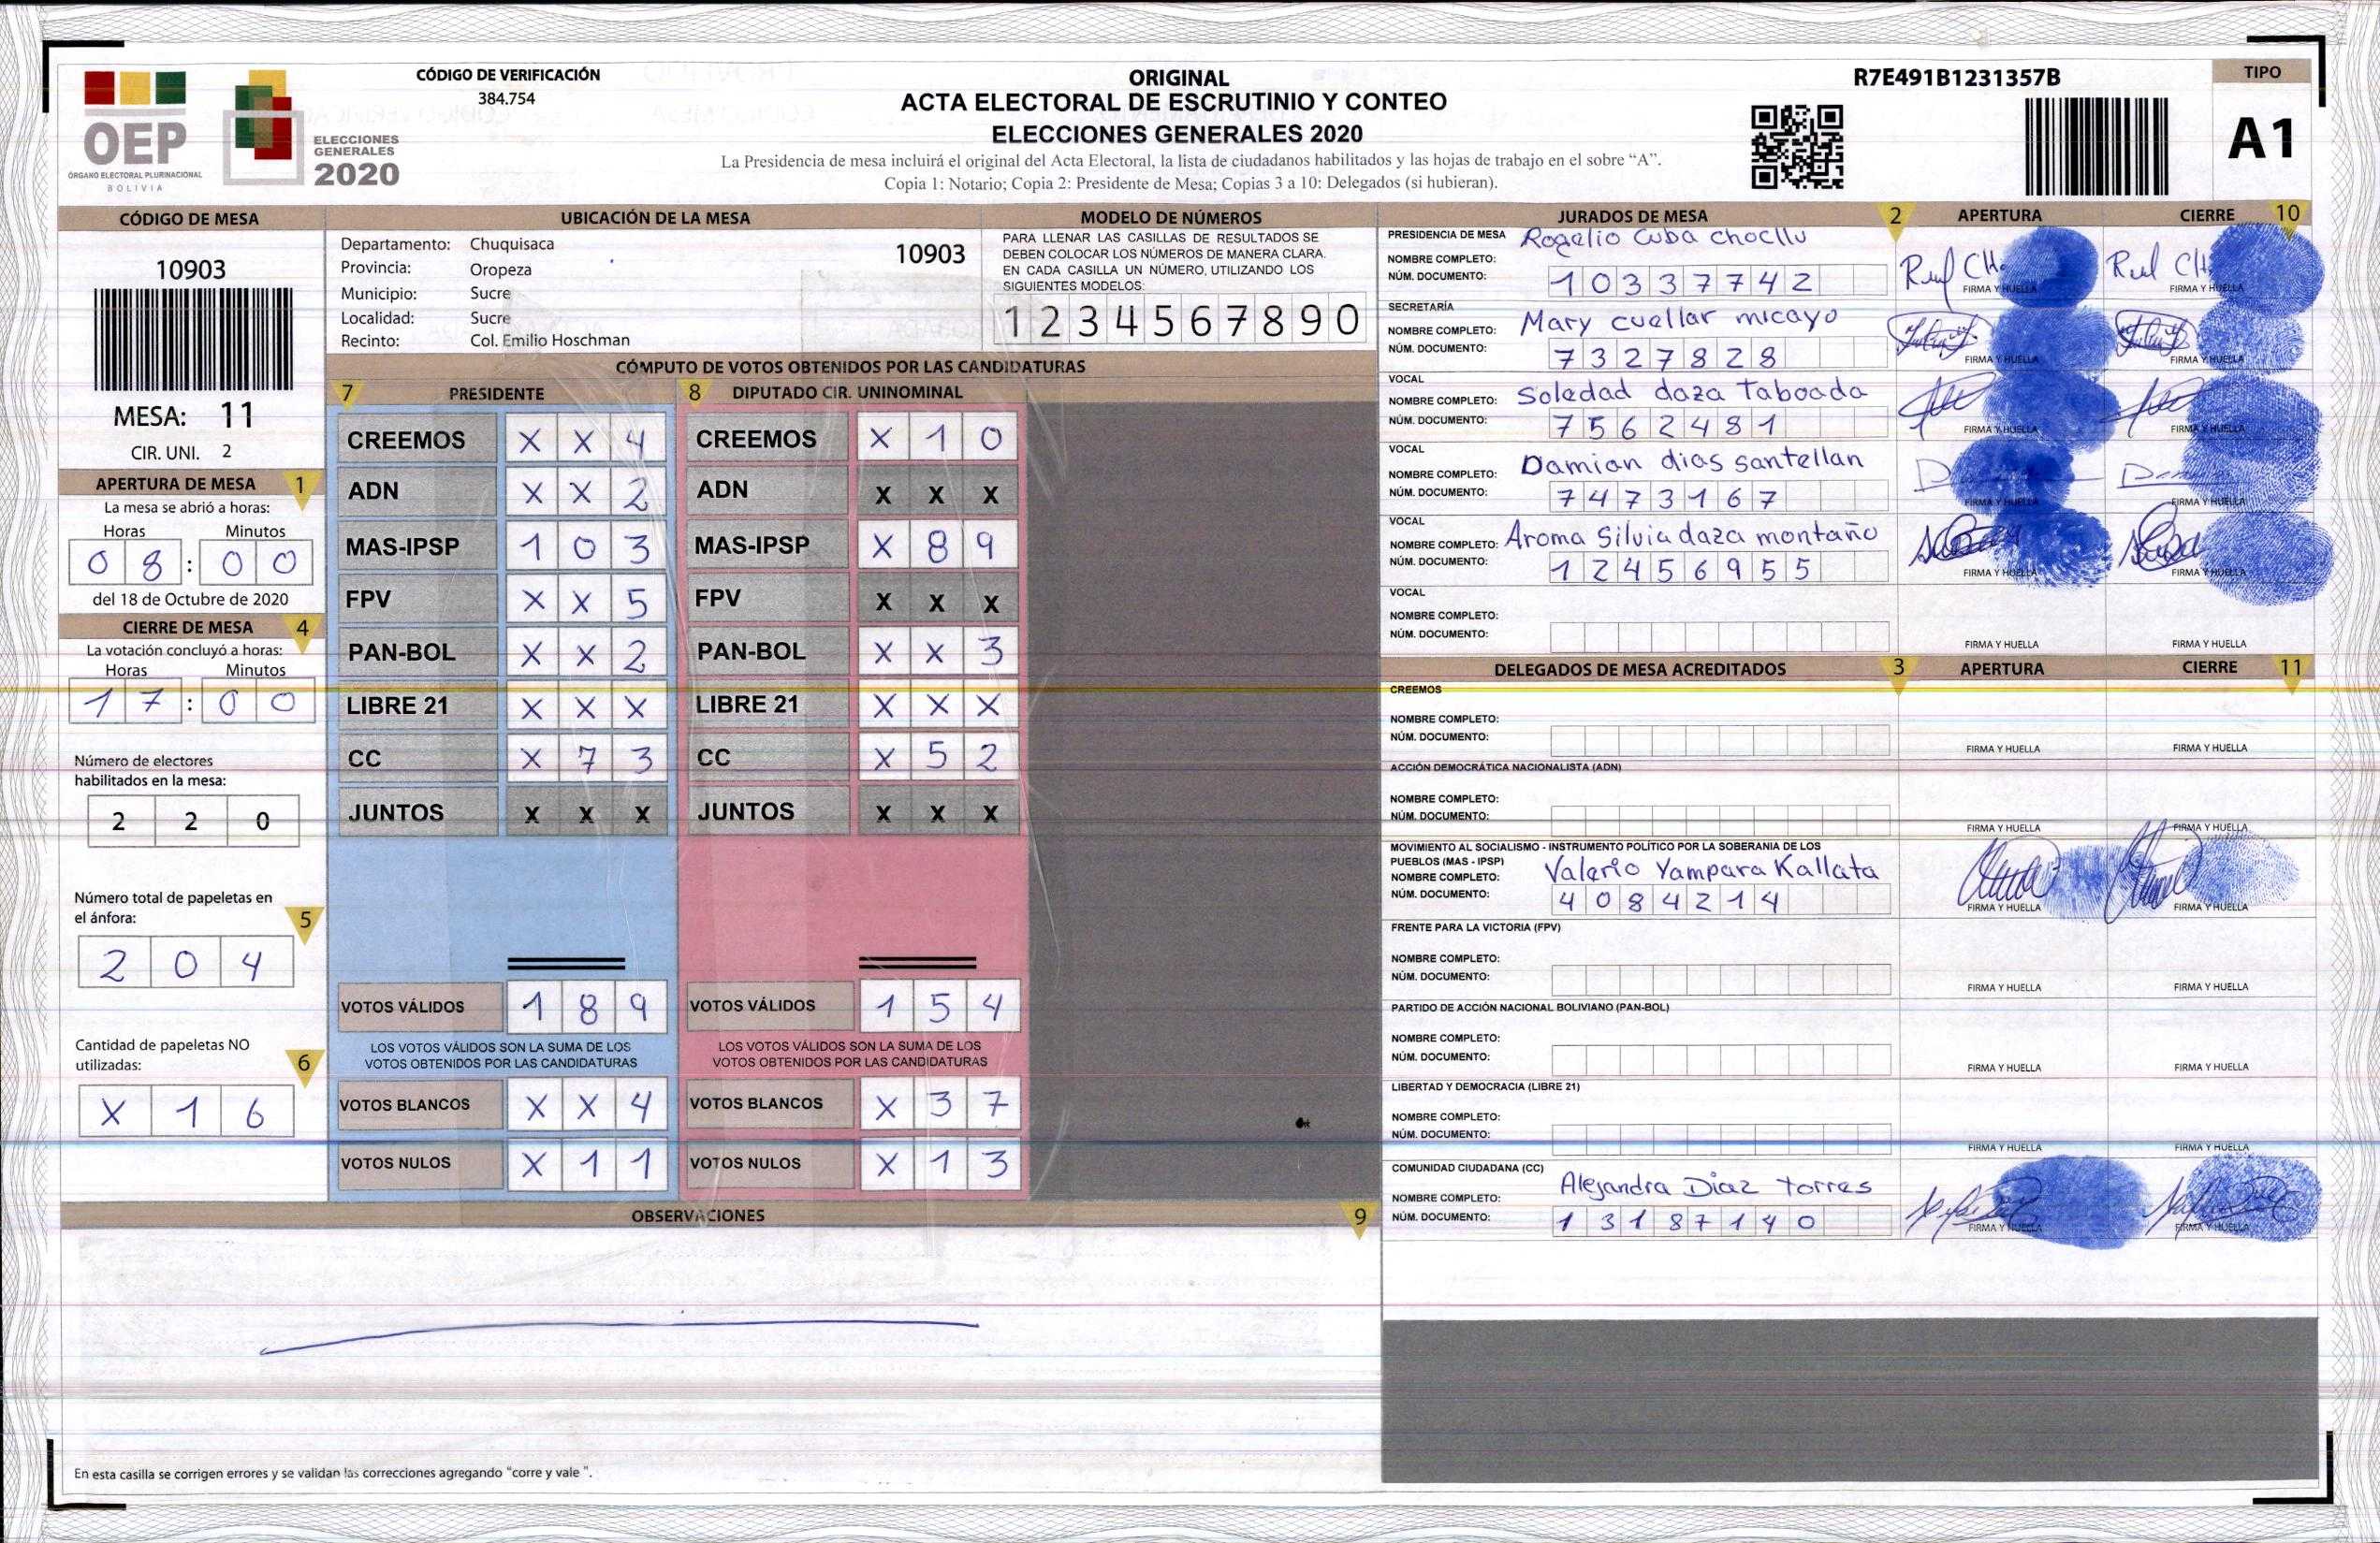 OEP
ÓRGANO ELECTORAL PLURINACIONAL
BOLIVIA
ELECCIONES
GENERALES
2020
CÓDIGO DE VERIFICACIÓN
384.754
ORIGINAL
ACTA ELECTORAL DE ESCRUTINIO Y CONTEO
ELECCIONES GENERALES 2020
La Presidencia de mesa incluirá el original del Acta Electoral, la lista de ciudadanos habilitados y las hojas de trabajo en el sobre “A”.
Copia 1: Notario; Copia 2: Presidente de Mesa; Copias 3 a 10: Delegados (si hubieran).
R7E491B1231357B
TIPO
A1
CÓDIGO DE MESA
10903
MESA: 11
CIR. UNI. 2
APERTURA DE MESA 1
La mesa se abrió a horas:
Horas Minutos
0 8 : 0 0
del 18 de Octubre de 2020
CIERRE DE MESA 4
La votación concluyó a horas:
Horas Minutos
1 7 : 0 0
Número de electores
habilitados en la mesa:
2 2 0
Número total de papeletas en
el ánfora: 5
2 0 4
Cantidad de papeletas NO
utilizadas: 6
X 1 6
UBICACIÓN DE LA MESA
Departamento: Chuquisaca 10903
Provincia: Oropeza
Municipio: Sucre
Localidad: Sucre
Recinto: Col. Emilio Hoschman
MODELO DE NÚMEROS
PARA LLENAR LAS CASILLAS DE RESULTADOS SE
DEBEN COLOCAR LOS NÚMEROS DE MANERA CLARA.
EN CADA CASILLA UN NÚMERO, UTILIZANDO LOS
SIGUIENTES MODELOS:
1 2 3 4 5 6 7 8 9 0
CÓMPUTO DE VOTOS OBTENIDOS POR LAS CANDIDATURAS
7 PRESIDENTE 8 DIPUTADO CIR. UNINOMINAL
CREEMOS X X 4 CREEMOS X 1 0
ADN X X 2 ADN X X X
MAS-IPSP 1 0 3 MAS-IPSP X 8 9
FPV X X 5 FPV X X X
PAN-BOL X X 2 PAN-BOL X X 3
LIBRE 21 X X X LIBRE 21 X X X
CC X 7 3 CC X 5 2
JUNTOS X X X JUNTOS X X X
VOTOS VÁLIDOS 1 8 9 VOTOS VÁLIDOS 1 5 4
LOS VOTOS VÁLIDOS SON LA SUMA DE LOS LOS VOTOS VÁLIDOS SON LA SUMA DE LOS
VOTOS OBTENIDOS POR LAS CANDIDATURAS VOTOS OBTENIDOS POR LAS CANDIDATURAS
VOTOS BLANCOS X X 4 VOTOS BLANCOS X 3 7
VOTOS NULOS X 1 1 VOTOS NULOS X 1 3
OBSERVACIONES 9
En esta casilla se corrigen errores y se validan las correcciones agregando “corre y vale ”.
JURADOS DE MESA 2 APERTURA CIERRE 10
PRESIDENCIA DE MESA Rogelio Cuba Chocllu
NOMBRE COMPLETO:
NÚM. DOCUMENTO: 10337742
FIRMA Y HUELLA FIRMA Y HUELLA
SECRETARÍA
NOMBRE COMPLETO: Mary cuellar micayo
NÚM. DOCUMENTO: 7327828
FIRMA Y HUELLA FIRMA Y HUELLA
VOCAL
NOMBRE COMPLETO: Soledad daza Taboada
NÚM. DOCUMENTO: 7562481
FIRMA Y HUELLA FIRMA Y HUELLA
VOCAL
NOMBRE COMPLETO: Damian dias santellan
NÚM. DOCUMENTO: 7473167
FIRMA Y HUELLA FIRMA Y HUELLA
VOCAL
NOMBRE COMPLETO: Aroma Silvia daza montaño
NÚM. DOCUMENTO: 12456955
FIRMA Y HUELLA FIRMA Y HUELLA
VOCAL
NOMBRE COMPLETO:
NÚM. DOCUMENTO:
FIRMA Y HUELLA FIRMA Y HUELLA
DELEGADOS DE MESA ACREDITADOS 3 APERTURA CIERRE 11
CREEMOS
NOMBRE COMPLETO:
NÚM. DOCUMENTO:
FIRMA Y HUELLA FIRMA Y HUELLA
ACCIÓN DEMOCRÁTICA NACIONALISTA (ADN)
NOMBRE COMPLETO:
NÚM. DOCUMENTO:
FIRMA Y HUELLA FIRMA Y HUELLA
MOVIMIENTO AL SOCIALISMO - INSTRUMENTO POLÍTICO POR LA SOBERANIA DE LOS
PUEBLOS (MAS - IPSP)
NOMBRE COMPLETO: Valerio Yampara Kallata
NÚM. DOCUMENTO: 4084214
FIRMA Y HUELLA FIRMA Y HUELLA
FRENTE PARA LA VICTORIA (FPV)
NOMBRE COMPLETO:
NÚM. DOCUMENTO:
FIRMA Y HUELLA FIRMA Y HUELLA
PARTIDO DE ACCIÓN NACIONAL BOLIVIANO (PAN-BOL)
NOMBRE COMPLETO:
NÚM. DOCUMENTO:
FIRMA Y HUELLA FIRMA Y HUELLA
LIBERTAD Y DEMOCRACIA (LIBRE 21)
NOMBRE COMPLETO:
NÚM. DOCUMENTO:
FIRMA Y HUELLA FIRMA Y HUELLA
COMUNIDAD CIUDADANA (CC)
NOMBRE COMPLETO: Alejandra Diaz Torres
NÚM. DOCUMENTO: 13187140
FIRMA Y HUELLA FIRMA Y HUELLA